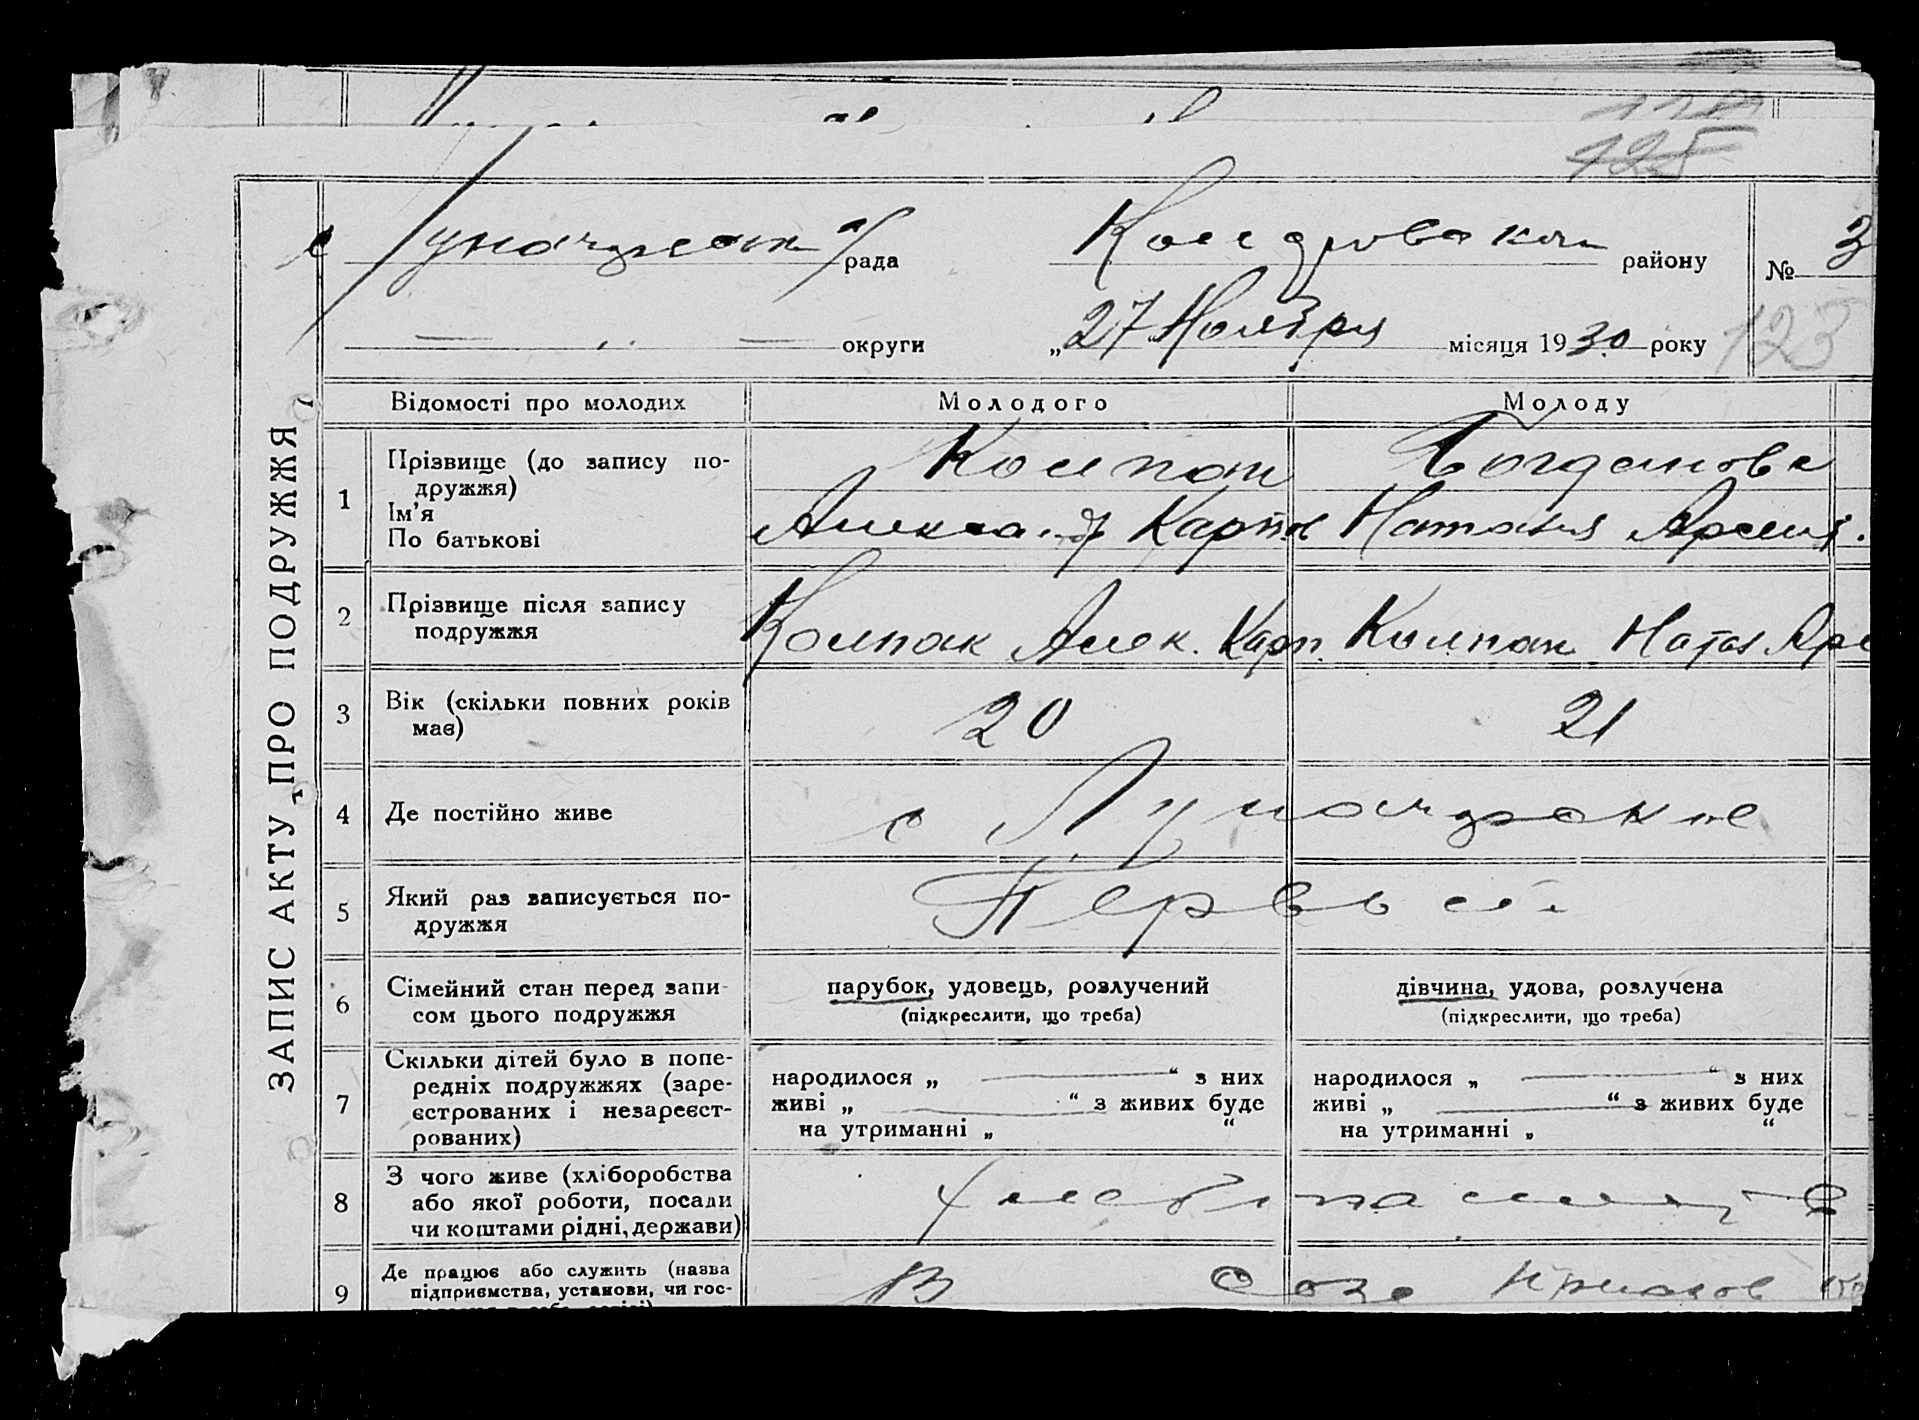 125
Луначарск с/рада
Кондровского району
№ 3
округи
„27" Ноября місяця 1930 року
123
ЗАПИС АКТУ ПРО ПОДРУЖЖЯ
Відомості про молодих
Молодого
Молоду
1
Прізвище (до запису по-
дружжя)
Ім'я
По батькові
Колпак
Александ Карпов
Богданова
Наталья Арсен.
2
Прізвище після запису
подружжя
Колпак Алек. Карп.
Колпак Натал Арс
3
Вік (скільки повних років
має)
20
21
4
Де постійно живе
с Луначарское
5
Який раз записується по-
дружжя
Первый
6
Сімейний стан перед запи-
сом цього подружжя
парубок, удовець, розлучений
(підкреслити, що треба)
дівчина, удова, розлучена
(підкреслити, що треба)
7
Скільки дітей було в попе-
редніх подружжях (заре-
єстрованих і незареєст-
рованих)
народилося „ — " з них
живі „ — " з живих буде
на утриманні „ "
народилося „ — " з них
живі „ — " з живих буде
на утриманні „ "
8
З чого живе (хліборобства
або якої роботи, посади
чи коштами рідні, держави)
9
Де працює або служить (назва
підприємства, установи, чи гос-
В